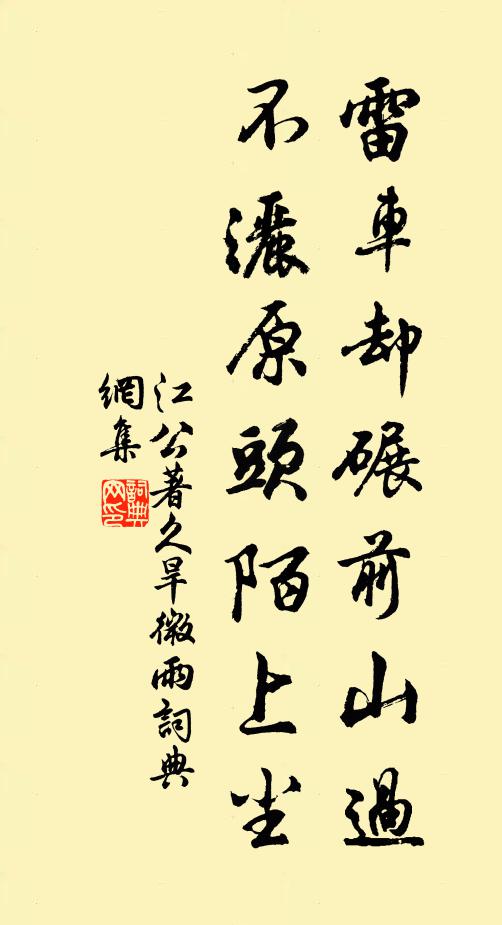 雷車却碾前山過
不灑原頭陌上尘
江公著久旱微雨詞典
網集
詞典
网印